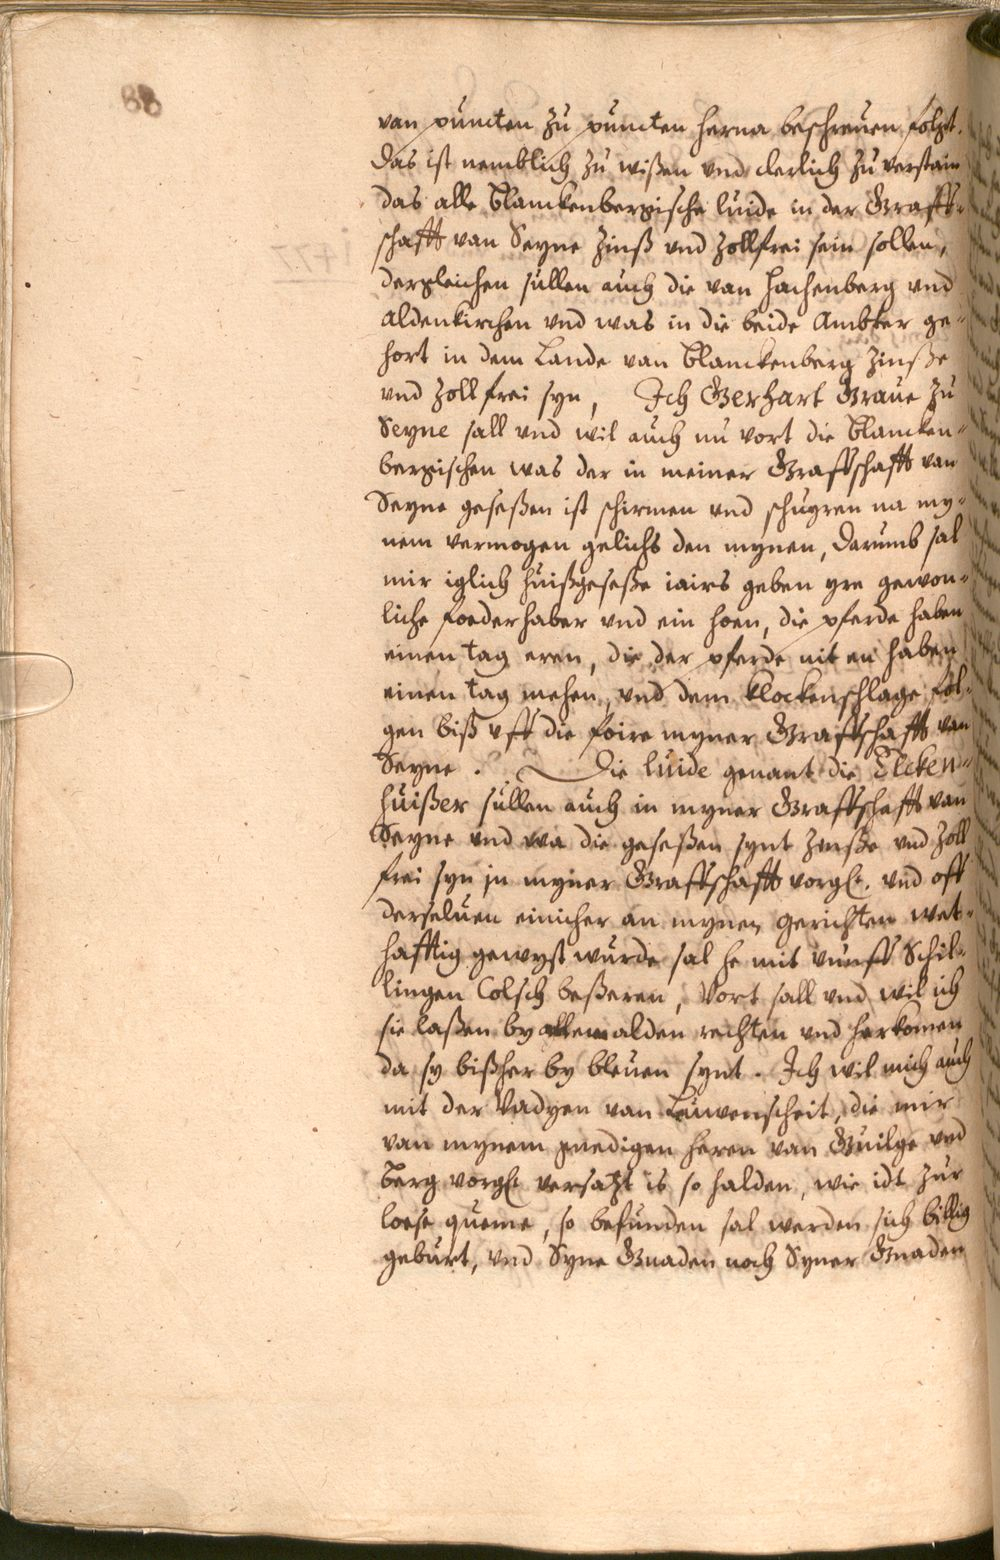 88
van puncten zu puncten herna beschreuen folgt.
Das ist nemblich zu wißen vnd clerlich zu verstain
das alle Blanckenbergische luide in der Graff-
schafft van Seyne Zinß vnd Zollfrei sein sollen,
dergleichen sullen auch die van Hachenberg vnd
Aldenkirchen vnd was in die beide Ambter ge-
hort in dem Lande van Blanckenberg Zinße
vnd Zollfrei syn, Ich Gerhart Graue zu
Seyne sall vnd wil auch nu vort die Blancken-
bergischen was der in meiner Graffschafft van
Seyne geseßen ist schirmen vnd schuyren na my-
nem vermogen gelichs den mynen, Darumb sal
mir iglich huißgeseße iairs geben yre gewon-
liche foederhaber vnd ein hoen, die pferde haben
einen tag eren, die der pferde nit en haben
einen tag mehen, vnd dem klockenschlage fol-
gen biß vff die foire myner Graffschafft van
Seyne. Die luide genant die Ecken-
huißer sullen auch in myner Graffschafft van
Seyne vnd wa die geseßen synt Zinße vnd Zoll
frei syn in myner Graffschafft vorgt. vnd off
derseluen einicher an mynen gerichten wet-
hafftig gewyst wurde sal he mit vunff Schil-
lingen Colsch beßeren, Vort sall vnd wil ich
sie laßen by allem alden rechten vnd herkomen
da sy bißher by bleuen synt. Ich wil mich auch
mit der Vadyen van Leuwenscheit, die mir
van mynem gnedigen heren van Guilge vnd
Berg vorgt versatzt is so halden, wie idt zur
loese queme, so befunden sal werden sich billig
geburt, vnd Syne Gnaden noch Syner Gnaden